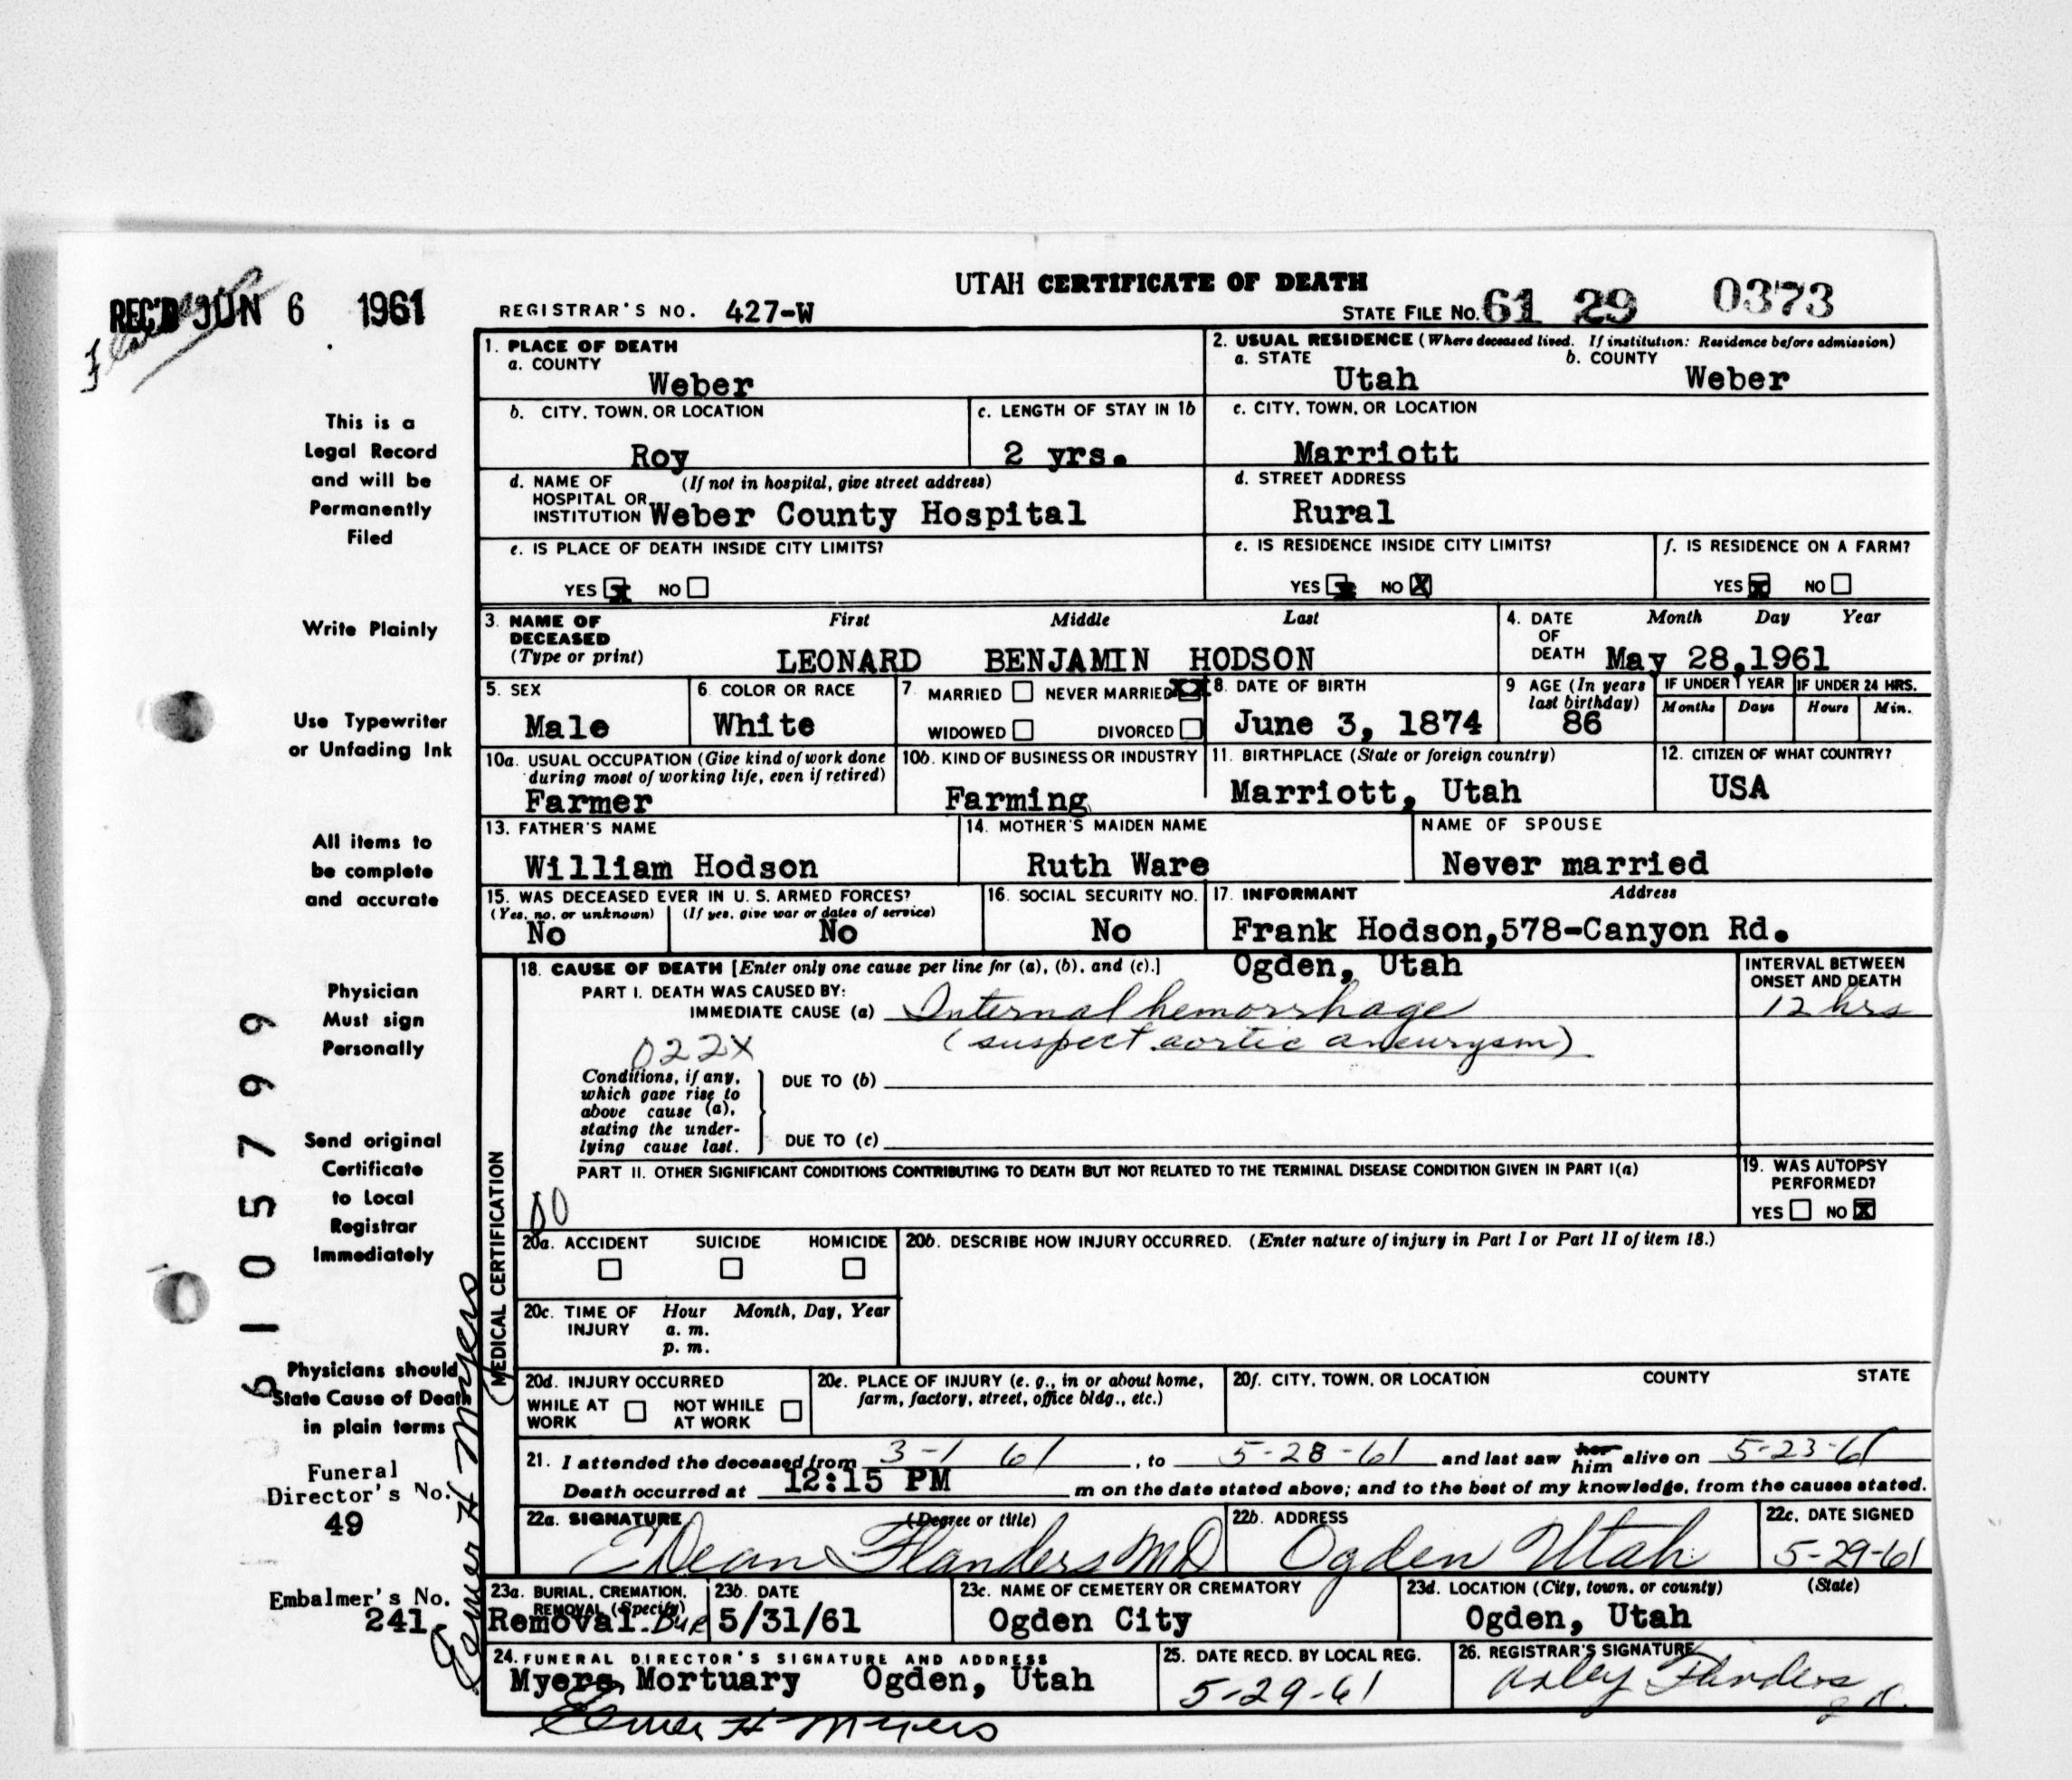 UTAH CERTIFICATE OF DEATH
REC'D JUN 6 1961
REGISTRAR'S NO. 427-W
STATE FILE NO. 61 29 0373
1. PLACE OF DEATH
a. COUNTY
Weber
2. USUAL RESIDENCE (Where deceased lived. If institution: Residence before admission)
a. STATE
Utah
b. COUNTY
Weber
b. CITY, TOWN, OR LOCATION
Roy
c. LENGTH OF STAY IN 1b
2 yrs.
c. CITY, TOWN, OR LOCATION
Marriott
d. NAME OF HOSPITAL OR INSTITUTION
(If not in hospital, give street address)
Weber County Hospital
d. STREET ADDRESS
Rural
e. IS PLACE OF DEATH INSIDE CITY LIMITS?
YES x NO
e. IS RESIDENCE INSIDE CITY LIMITS?
YES NO X
f. IS RESIDENCE ON A FARM?
YES x NO
3. NAME OF DECEASED
(Type or print)
First Middle Last
LEONARD BENJAMIN HODSON
4. DATE OF DEATH
Month Day Year
May 28,1961
5. SEX
Male
6. COLOR OR RACE
White
7. MARRIED NEVER MARRIED X
WIDOWED DIVORCED
8. DATE OF BIRTH
June 3, 1874
9 AGE (In years last birthday)
86
IF UNDER 1 YEAR
Months Days
IF UNDER 24 HRS.
Hours Min.
10a. USUAL OCCUPATION (Give kind of work done during most of working life, even if retired)
Farmer
10b. KIND OF BUSINESS OR INDUSTRY
Farming
11. BIRTHPLACE (State or foreign country)
Marriott, Utah
12. CITIZEN OF WHAT COUNTRY?
USA
13. FATHER'S NAME
William Hodson
14. MOTHER'S MAIDEN NAME
Ruth Ware
NAME OF SPOUSE
Never married
15. WAS DECEASED EVER IN U. S. ARMED FORCES?
(Yes, no, or unknown) (If yes, give war or dates of service)
No No
16. SOCIAL SECURITY NO.
No
17. INFORMANT Address
Frank Hodson,578-Canyon Rd.
Ogden, Utah
MEDICAL CERTIFICATION
18. CAUSE OF DEATH [Enter only one cause per line for (a), (b), and (c).]
PART I. DEATH WAS CAUSED BY:
IMMEDIATE CAUSE (a) Internal hemorrhage
(suspect aortic aneurysm)
022X
INTERVAL BETWEEN ONSET AND DEATH
12 hrs
Conditions, if any, which gave rise to above cause (a), stating the underlying cause last.
DUE TO (b)
DUE TO (c)
PART II. OTHER SIGNIFICANT CONDITIONS CONTRIBUTING TO DEATH BUT NOT RELATED TO THE TERMINAL DISEASE CONDITION GIVEN IN PART I(a)
00
19. WAS AUTOPSY PERFORMED?
YES NO X
20a. ACCIDENT SUICIDE HOMICIDE
20b. DESCRIBE HOW INJURY OCCURRED. (Enter nature of injury in Part I or Part II of item 18.)
20c. TIME OF INJURY
Hour Month, Day, Year
a. m.
p. m.
20d. INJURY OCCURRED
WHILE AT WORK NOT WHILE AT WORK
20e. PLACE OF INJURY (e. g., in or about home, farm, factory, street, office bldg., etc.)
20f. CITY, TOWN, OR LOCATION COUNTY STATE
21. I attended the deceased from 3-1 61, to 5-28-61 and last saw her him alive on 5-23-61
Death occurred at 12:15 PM m on the date stated above; and to the best of my knowledge, from the causes stated.
22a. SIGNATURE (Degree or title)
E Dean Flanders MD
22b. ADDRESS
Ogden Utah
22c. DATE SIGNED
5-29-61
23a. BURIAL, CREMATION, REMOVAL (Specify)
Removal-Bur
23b. DATE
5/31/61
23c. NAME OF CEMETERY OR CREMATORY
Ogden City
23d. LOCATION (City, town, or county) (State)
Ogden, Utah
24. FUNERAL DIRECTOR'S SIGNATURE AND ADDRESS
Myers Mortuary Ogden, Utah
Elmer H Myers
25. DATE RECD. BY LOCAL REG.
5-29-61
26. REGISTRAR'S SIGNATURE
Flanders
This is a
Legal Record
and will be
Permanently
Filed
Write Plainly
Use Typewriter
or Unfading Ink
All items to
be complete
and accurate
Physician
Must sign
Personally
Send original
Certificate
to Local
Registrar
Immediately
Physicians should
State Cause of Death
in plain terms
Funeral
Director's No.
49
Embalmer's No.
241
Elmer H Myers
6105799